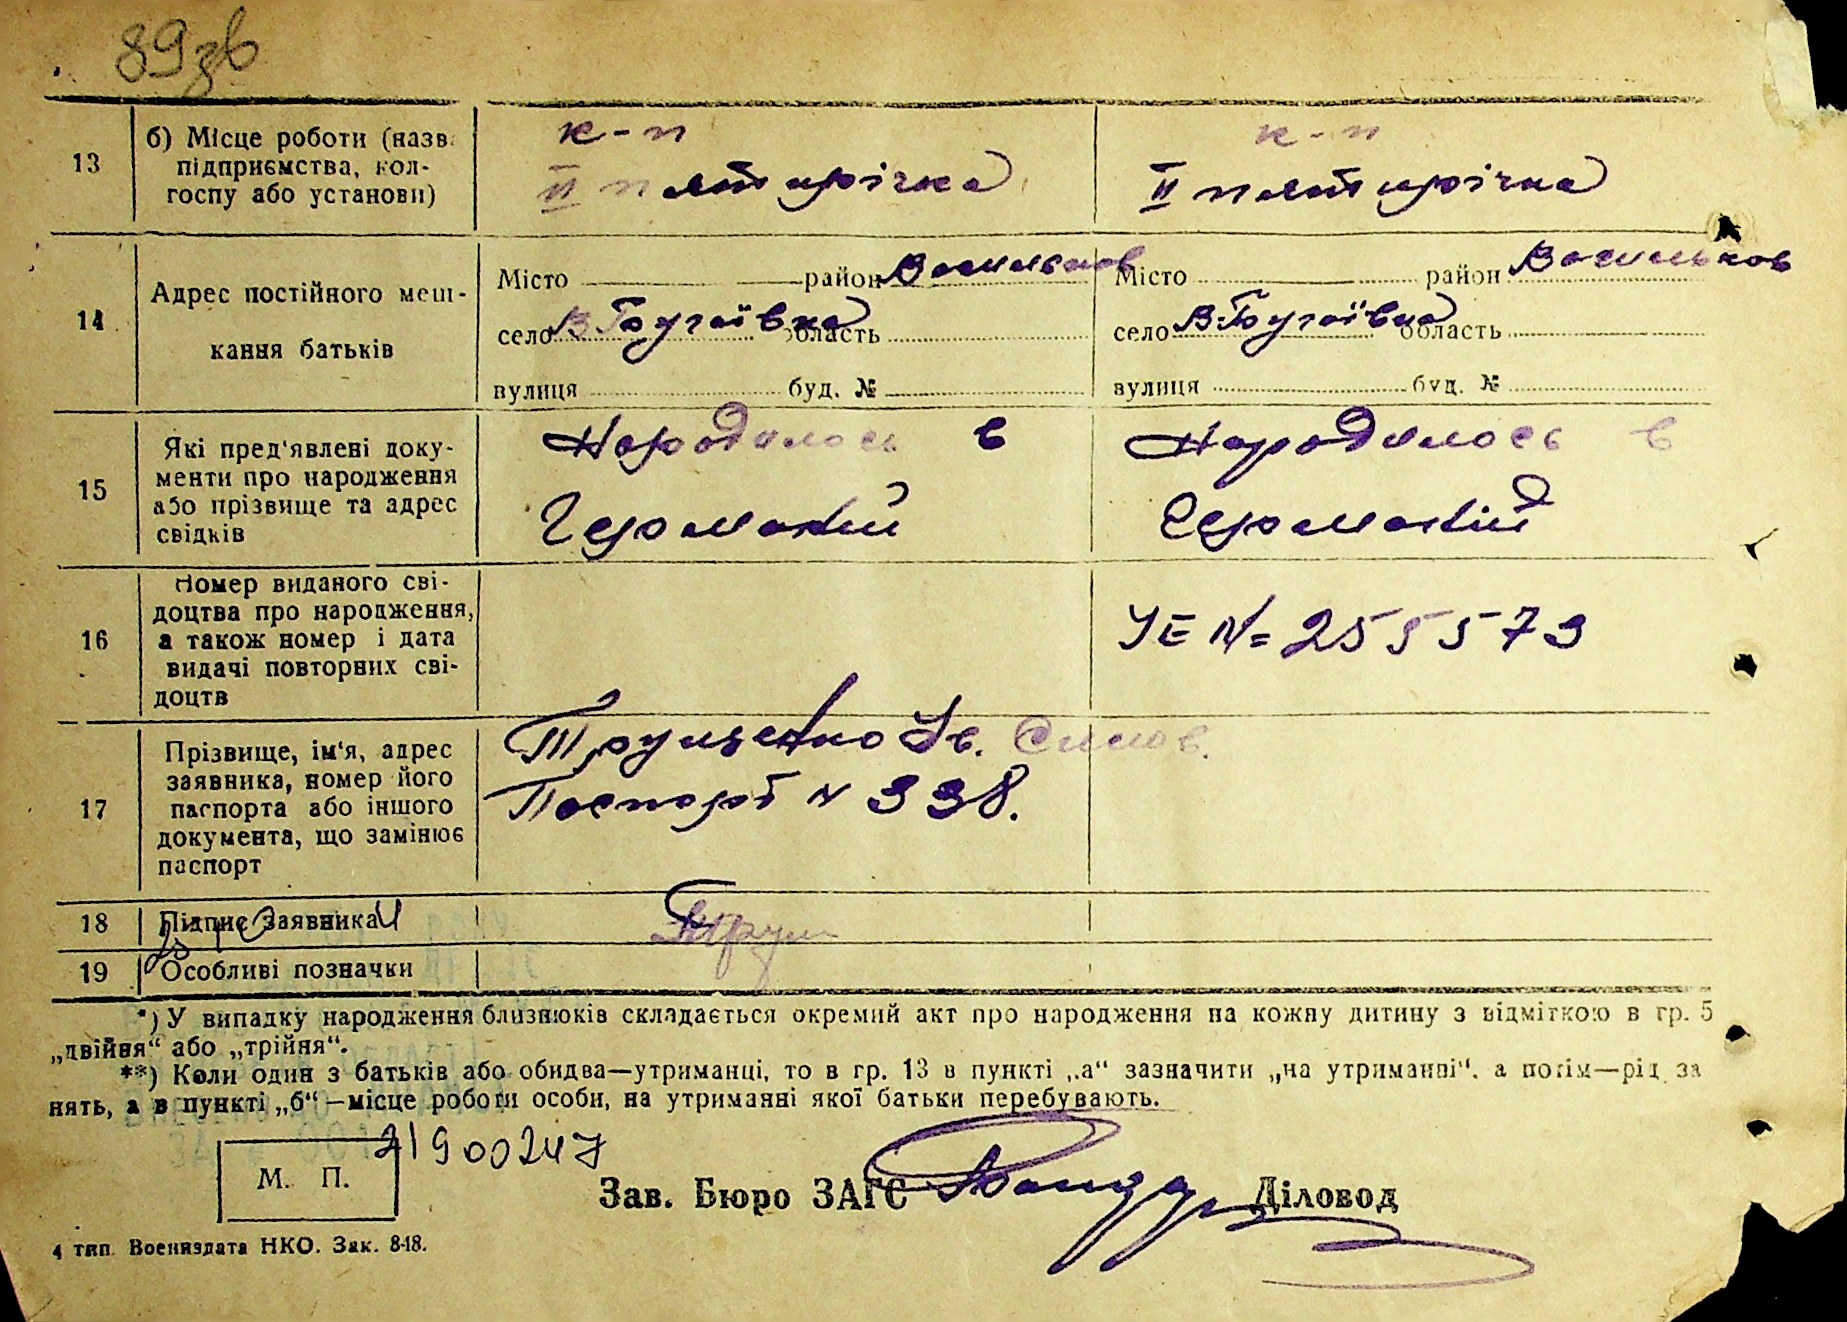 89зв
13 б) Місце роботи (назв. підприємства, кол-госпу або установи)
к-п к-п
ІІ пятирічка ІІ пятирічка
14 Адрес постійного меш-кання батьків
Місто район Васильков Місто район Васильков
село В Бугаївка область село В-Бугаївка область
вулиця буд. № вулиця буд. №
15 Які пред'явлені доку-
менти про народження
або прізвище та адрес
свідків
Народилось в Народилось в
Германії Германії
16 Номер виданого сві-
доцтва про народження,
а також номер і дата
видачі повторних сві-
доцтв
УЕ N= 255573
17 Прізвище, ім'я, адрес
заявника, номер його
паспорта або іншого
документа, що замінює
паспорт
Трущенко Ів. Симов.
Паспорт N 338.
18 Підпис заявника
19 Особливі позначки
*) У випадку народження близнюків складається окремий акт про народження на кожну дитину з відміткою в гр. 5
„двійня“ або „трійня“.
**) Коли один з батьків або обидва—утриманці, то в гр. 13 в пункті „а“ зазначити „на утриманні“, а потім—рід за
нять, а в пункті „б“—місце роботи особи, на утриманні якої батьки перебувають.
21900247
М. П.
Зав. Бюро ЗАГС Діловод
4 тип. Воениздата НКО. Зак. 8-18.